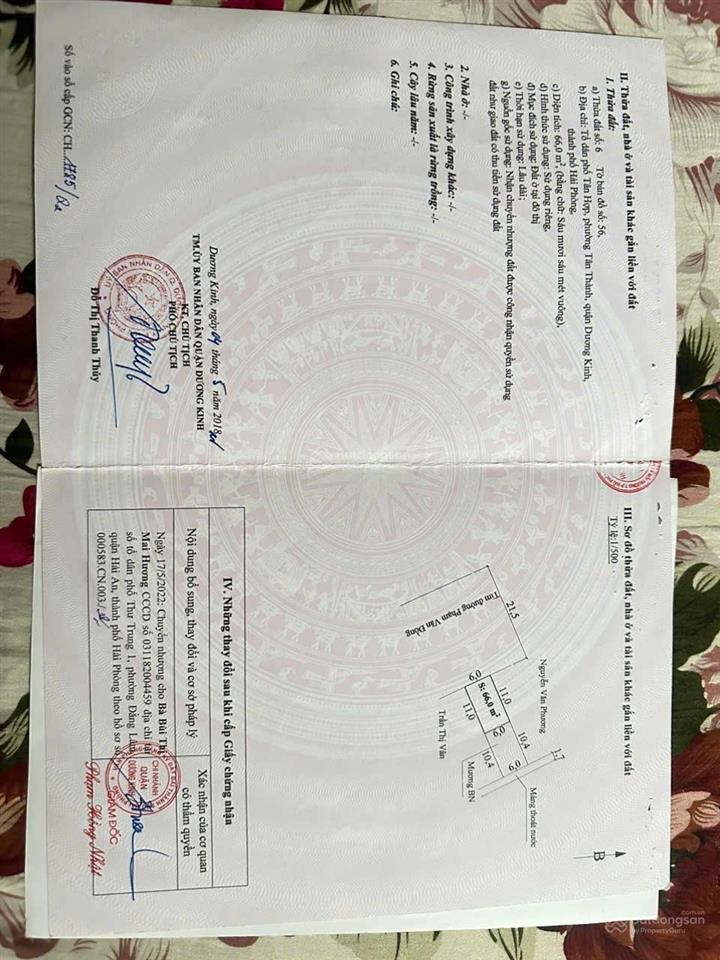 II. Thửa đất, nhà ở và tài sản khác gắn liền với đất
1. Thửa đất:
a) Thửa đất số: 6 Tờ bản đồ số: 56,
b) Địa chỉ: Tổ dân phố Tân Hợp, phường Tân Thành, quận Dương Kinh,
thành phố Hải Phòng,
c) Diện tích: 66,0 m², (bằng chữ: Sáu mươi sáu mét vuông),
d) Hình thức sử dụng: Sử dụng riêng,
đ) Mục đích sử dụng: Đất ở tại đô thị
e) Thời hạn sử dụng: Lâu dài;
g) Nguồn gốc sử dụng: Nhận chuyển nhượng đất được công nhận quyền sử dụng
đất như giao đất có thu tiền sử dụng đất
2. Nhà ở: -/-
3. Công trình xây dựng khác: -/-
4. Rừng sản xuất là rừng trồng: -/-
5. Cây lâu năm: -/-
6. Ghi chú:
Dương Kinh, ngày 04 tháng 5 năm 2018
TM.ỦY BAN NHÂN DÂN QUẬN DƯƠNG KINH
KT. CHỦ TỊCH
PHÓ CHỦ TỊCH
Đỗ Thị Thanh Thủy
Số vào sổ cấp GCN: CH
III. Sơ đồ thửa đất, nhà ở và tài sản khác gắn liền với đất
Tỷ lệ:1/500
B
21,5
Tim đường Phạm Văn Đồng
Nguyễn Văn Phương
6,0
11,0
S: 66,0 m²
11,0
6,0
10,4
10,4
6,0
1,7
Trần Thị Vân
Mương BN
Máng thoát nước
IV. Những thay đổi sau khi cấp Giấy chứng nhận
Nội dung bổ sung, thay đổi và cơ sở pháp lý
Xác nhận của cơ quan
có thẩm quyền
Ngày 17/5/2022: Chuyển nhượng cho Bà Bùi Thị
Mai Hương CCCD số 031182004459 địa chỉ tại
số tổ dân phố Thư Trung 1, phường Đằng Lâm,
quận Hải An, thành phố Hải Phòng theo hồ sơ số
000583.CN.003
CHI NHÁNH
QUẬN
DƯƠNG KINH
GIÁM ĐỐC
Phạm Hồng Nhật
batdongsan
.com.vn
by PropertyGuru